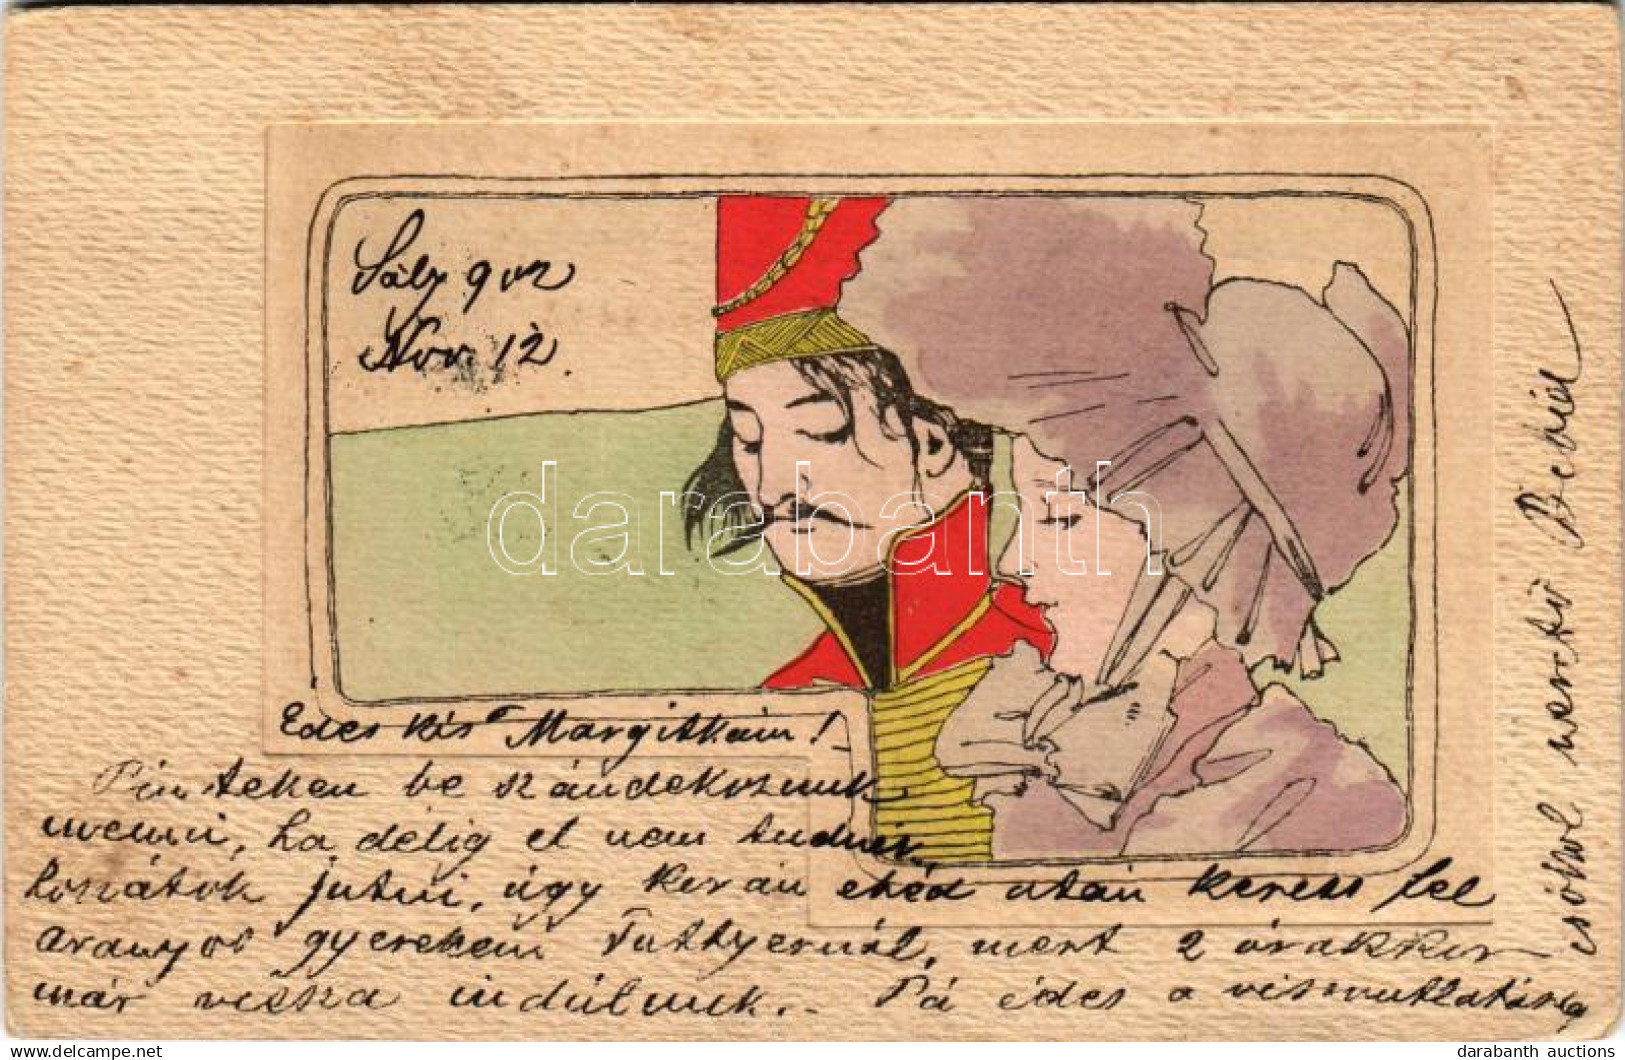 Sály 902
Nov. 12.
Edes kis Margitkám!
Pinteken be szándékozunk
menni, ha délig el nem tudnék
hozzátok jutni, úgy korán ebéd után keress fel
aranyos gyerekem Tuttyernál, mert 2 órakkor
már vissza indúlunk. - Pá édes a viszontlátásig
csókol szerető Böském
darabanth
© www.delcampe.net
darabanth auctions